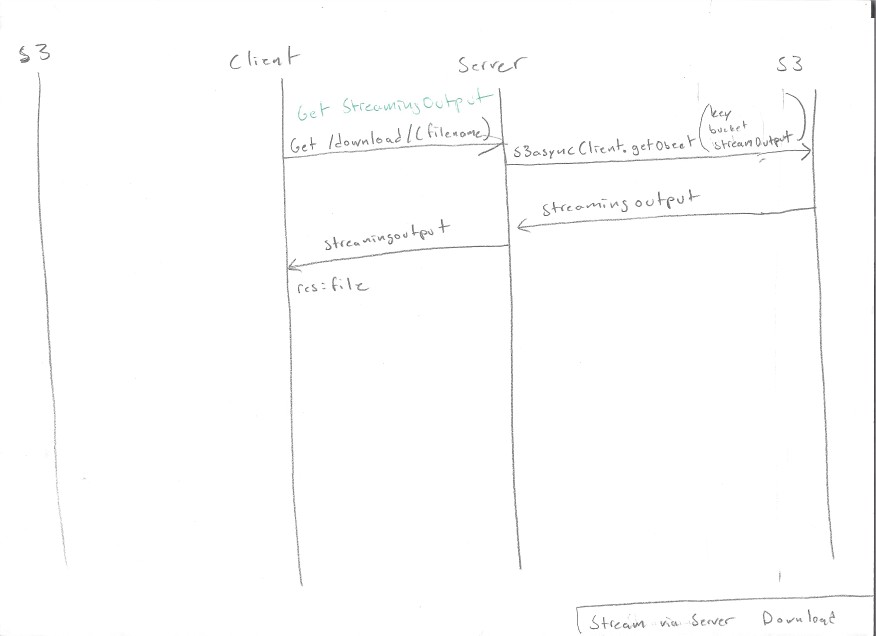 S3
Client
Server
S3
Get StreamingOutput
Get /download/{filename)
S3asyncClient.getObect
key
bucket
streamOutput
Streaming output
streamingoutput
res=file
Stream via Server Download